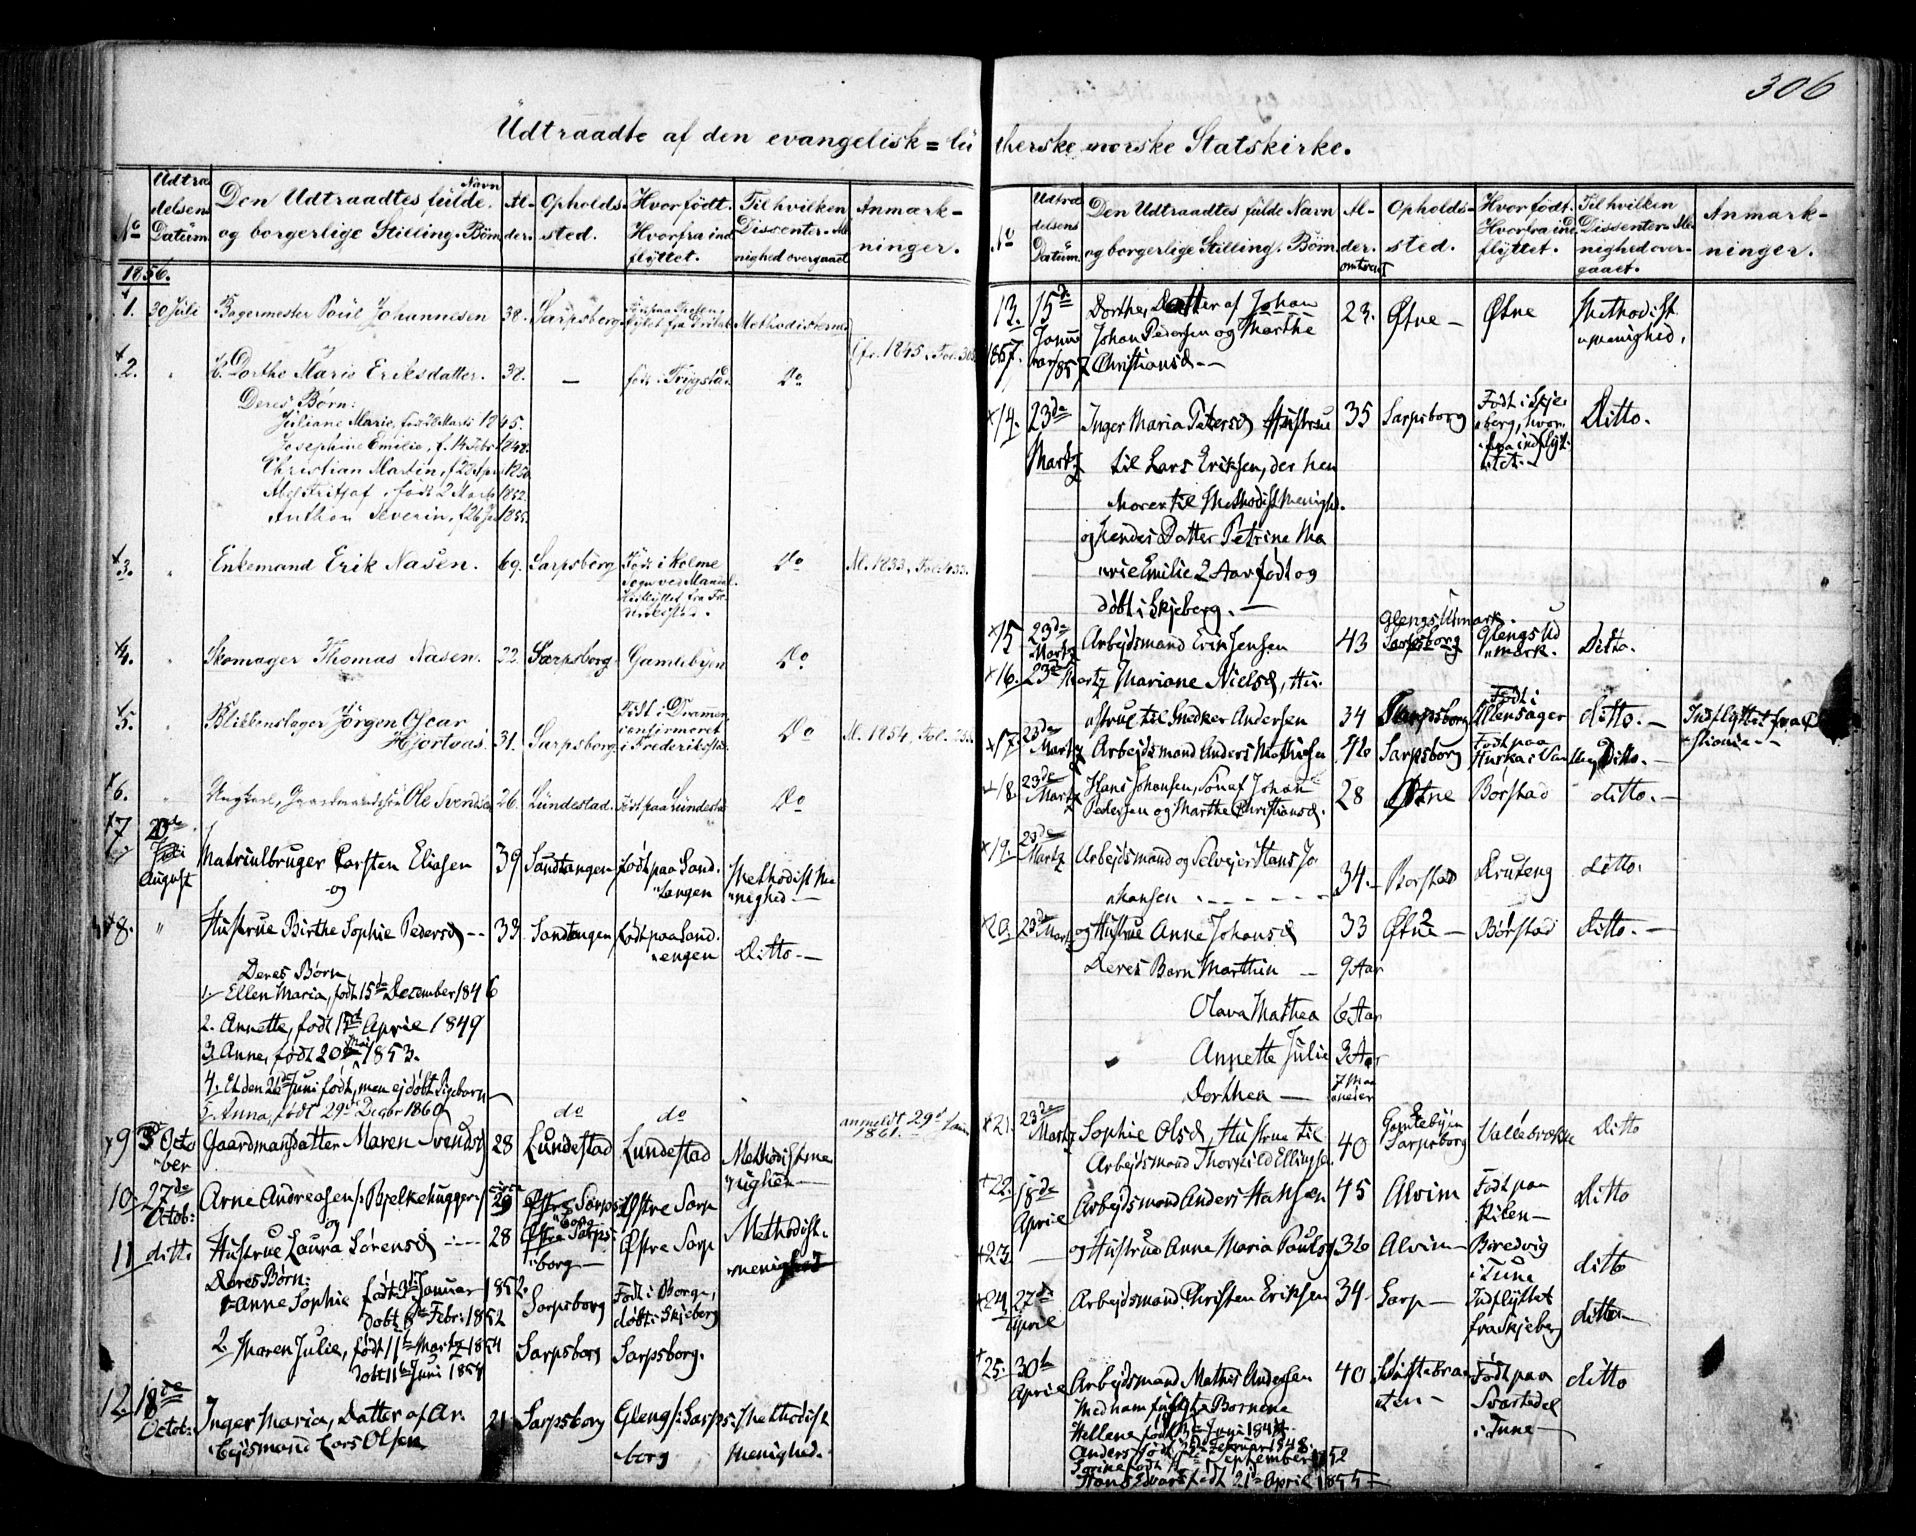 306
Udtraadte af den evangelisk=lu therske norske Statskirke.
No
Udtræ
delsens
Datum
Den Udtraadtes fulde Navn
og borgerlige Stilling. Børn
Al-
der.
Opholds-
sted.
Hvor født.
Hvorfra ind
flyttet.
Til hvilken
Dissenter-Me
nighed overgaaet
Anmærk-
ninger.
1856.
1. 30 Juli Bagermester Poul Johannesen 38. Sarpsborg Methodisternes
Cfr. 1845, Fol.
2. " H. Dorthe Marie Eriksdatter. 38. — født i Trygstad Do
Deres Børn:
Juliane Marie, 1845.
Josephine Emilie, f. 14 Febr 1848.
Christian Martin, f. 1850
født 2 Marts 1852.
Anthon Severin, f. 26 1855.
3. " Enkemand Erik Nasen. 69. Sarpsborg Født i Holme
Sogn ved Mandal.
Indflyttet fra Fre
Do M. 1833, Fol.
4. " Skomager Thomas Nasen. 22. Sarpsborg Gamlebyen Do
5. " Blikkenslager Jörgen Oscar
Hjortnas. 31. Sarpsborg Født i Dramen
confirmeret
i Frederikstad Do M. 1854, Fol.
6. " Ungkarl, Ole Svendsen 26. Lundestad. Født paa Lundestad Do
7. 23de
August Matriulbruger Carsten Eliasen 39 Sandtangen født paa Sand.
"tangen Methodist Me
"nighed —
og
8. " Hustrue Birthe Sophie Pedersd -- 39 Sandtangen født paa Sand.
"engen Ditto. —
Deres Børn
1. Ellen Maria, født 15de December 1846
2. Annette, født Aprie 1849
3. Anne, født 20de Mai 1853.
4. Et den 26de Juni født, men ej døbt Pigebarn
5. Anna, født 29de Decbr 1860 do do anmeldt 29d
1861.
9 3die Octo
"ber Gaardmansdatter Maren Svendsd 28 Lundestad Lundestad Methodistme
"nighen —
10. 27de
Octob: Arne Andreasen /: Bjelkehugger: circa
29 Østre Sarps
"borg Østre Sarp
og
11 ditto Hustrue Laura Sørensd — 28 Østre Sarps-
"borg — Østre Sarp Methodist-
"menighed
Deres Børn:
1. Anne Sophie født 3d Januar 1852.
døbt 8de Febr: 1852 Sarpsborg Født i Borge,
døbt i Skjeberg
2. Maren Julie, født 11te Martz 1854
døbt 11te Juni 1854 Sarpsborg Sarpsborg.
12. 18de
Octob: Inger Maria, Datter af Ar-
"bejdsmand Lars Olsen 21 Sarpsborg Gleng /: Sarps-
borg Methodist
Menighed.
No
Udtræ
delsens
Datum
Den Udtraadtes fulde Navn
og borgerlige Stilling. Børn
Al-
der.
omtrent
Opholds-
sted.
Hvor født.
Hvorfra ind
flyttet.
Til hvilken
Dissenter-Me
nighed over-
gaaet.
Anmærk-
ninger.
13. 15de
Janu
1857. Dorthe, Datter af Johan
Johan Pedersen og Marthe
Christiansd — 23. Østne — Østne Methodist
"menighed.
14. 23de
Martz Inger Maria Petersd Hustrue 35 Sarpsborg Født i Skje
"berg, hvor-
fra indflyt-
"tet. — Ditto.
til Lars Eriksen, der hen
hører til Methodist Menigh.
og hendes Datter Petrine Ma
"rie Emilie 2 Aar født og
døbt i Skjeberg. —
15 23de
Martz Arbejdsmand Erik Jensen 43 Glengs Udmark.
Sarpsborg Glengs Ud
"mark. Ditto.
16. 23de Martz Mariane Nielsd, Hu-
"strue til Snedker Andersen 34 Sarpsborg Født i
Ullensager ditto. — Indflyttet fra
17. 23de
Martz Arbejdsmand Anders Mathisen 46 Sarpsborg Født paa
Ditto. —
18. 23de
Martz Hans Johansen, Søn af Johan
Pedersen og Marthe Christiansd. 28 Østne Børstad ditto. —
19. 23de
Martz Arbejdsmand og Selvejer Hans Jo
"hansen 34. Borstad ditto.
20. 23de Martz og Hustrue Anne Johansd 33 Østne — Børstad ditto. —
Deres Børn Marthin — 9 Aar
Olava Mathea 6 Aar
Annette Julie 3 Aar
Dorthea — 7 Maa
"neder
21. 23de
Martz Sophie Olsd, Hustrue til
Arbejdsmand Thorkild Ellingsen. 40 Gamlebyen
Sarpsborg Vallebrække Ditto
22. 18de
Aprie Arbejdsmand Anders Hansen 45 Alvim Født paa
Ditto
23. — og Hustrue Anne Maria Paulsd 36 Alvim — Bredvig
i Tune ditto
24 27de
Aprie Arbejdsmand Christen Eriksen 34 Sarp — Indflyttet
fra Skjeberg ditto —
25. 30te
Aprie Arbejdsmand Mathis Andersen 40 Født paa
i Tune — ditto
Med ham fulgte Børnene
Hellene født 13de Juni 184
Anders født 25de Februar 1848.
Torine født September 1852
Hans Edvard født 21de April 1855 —